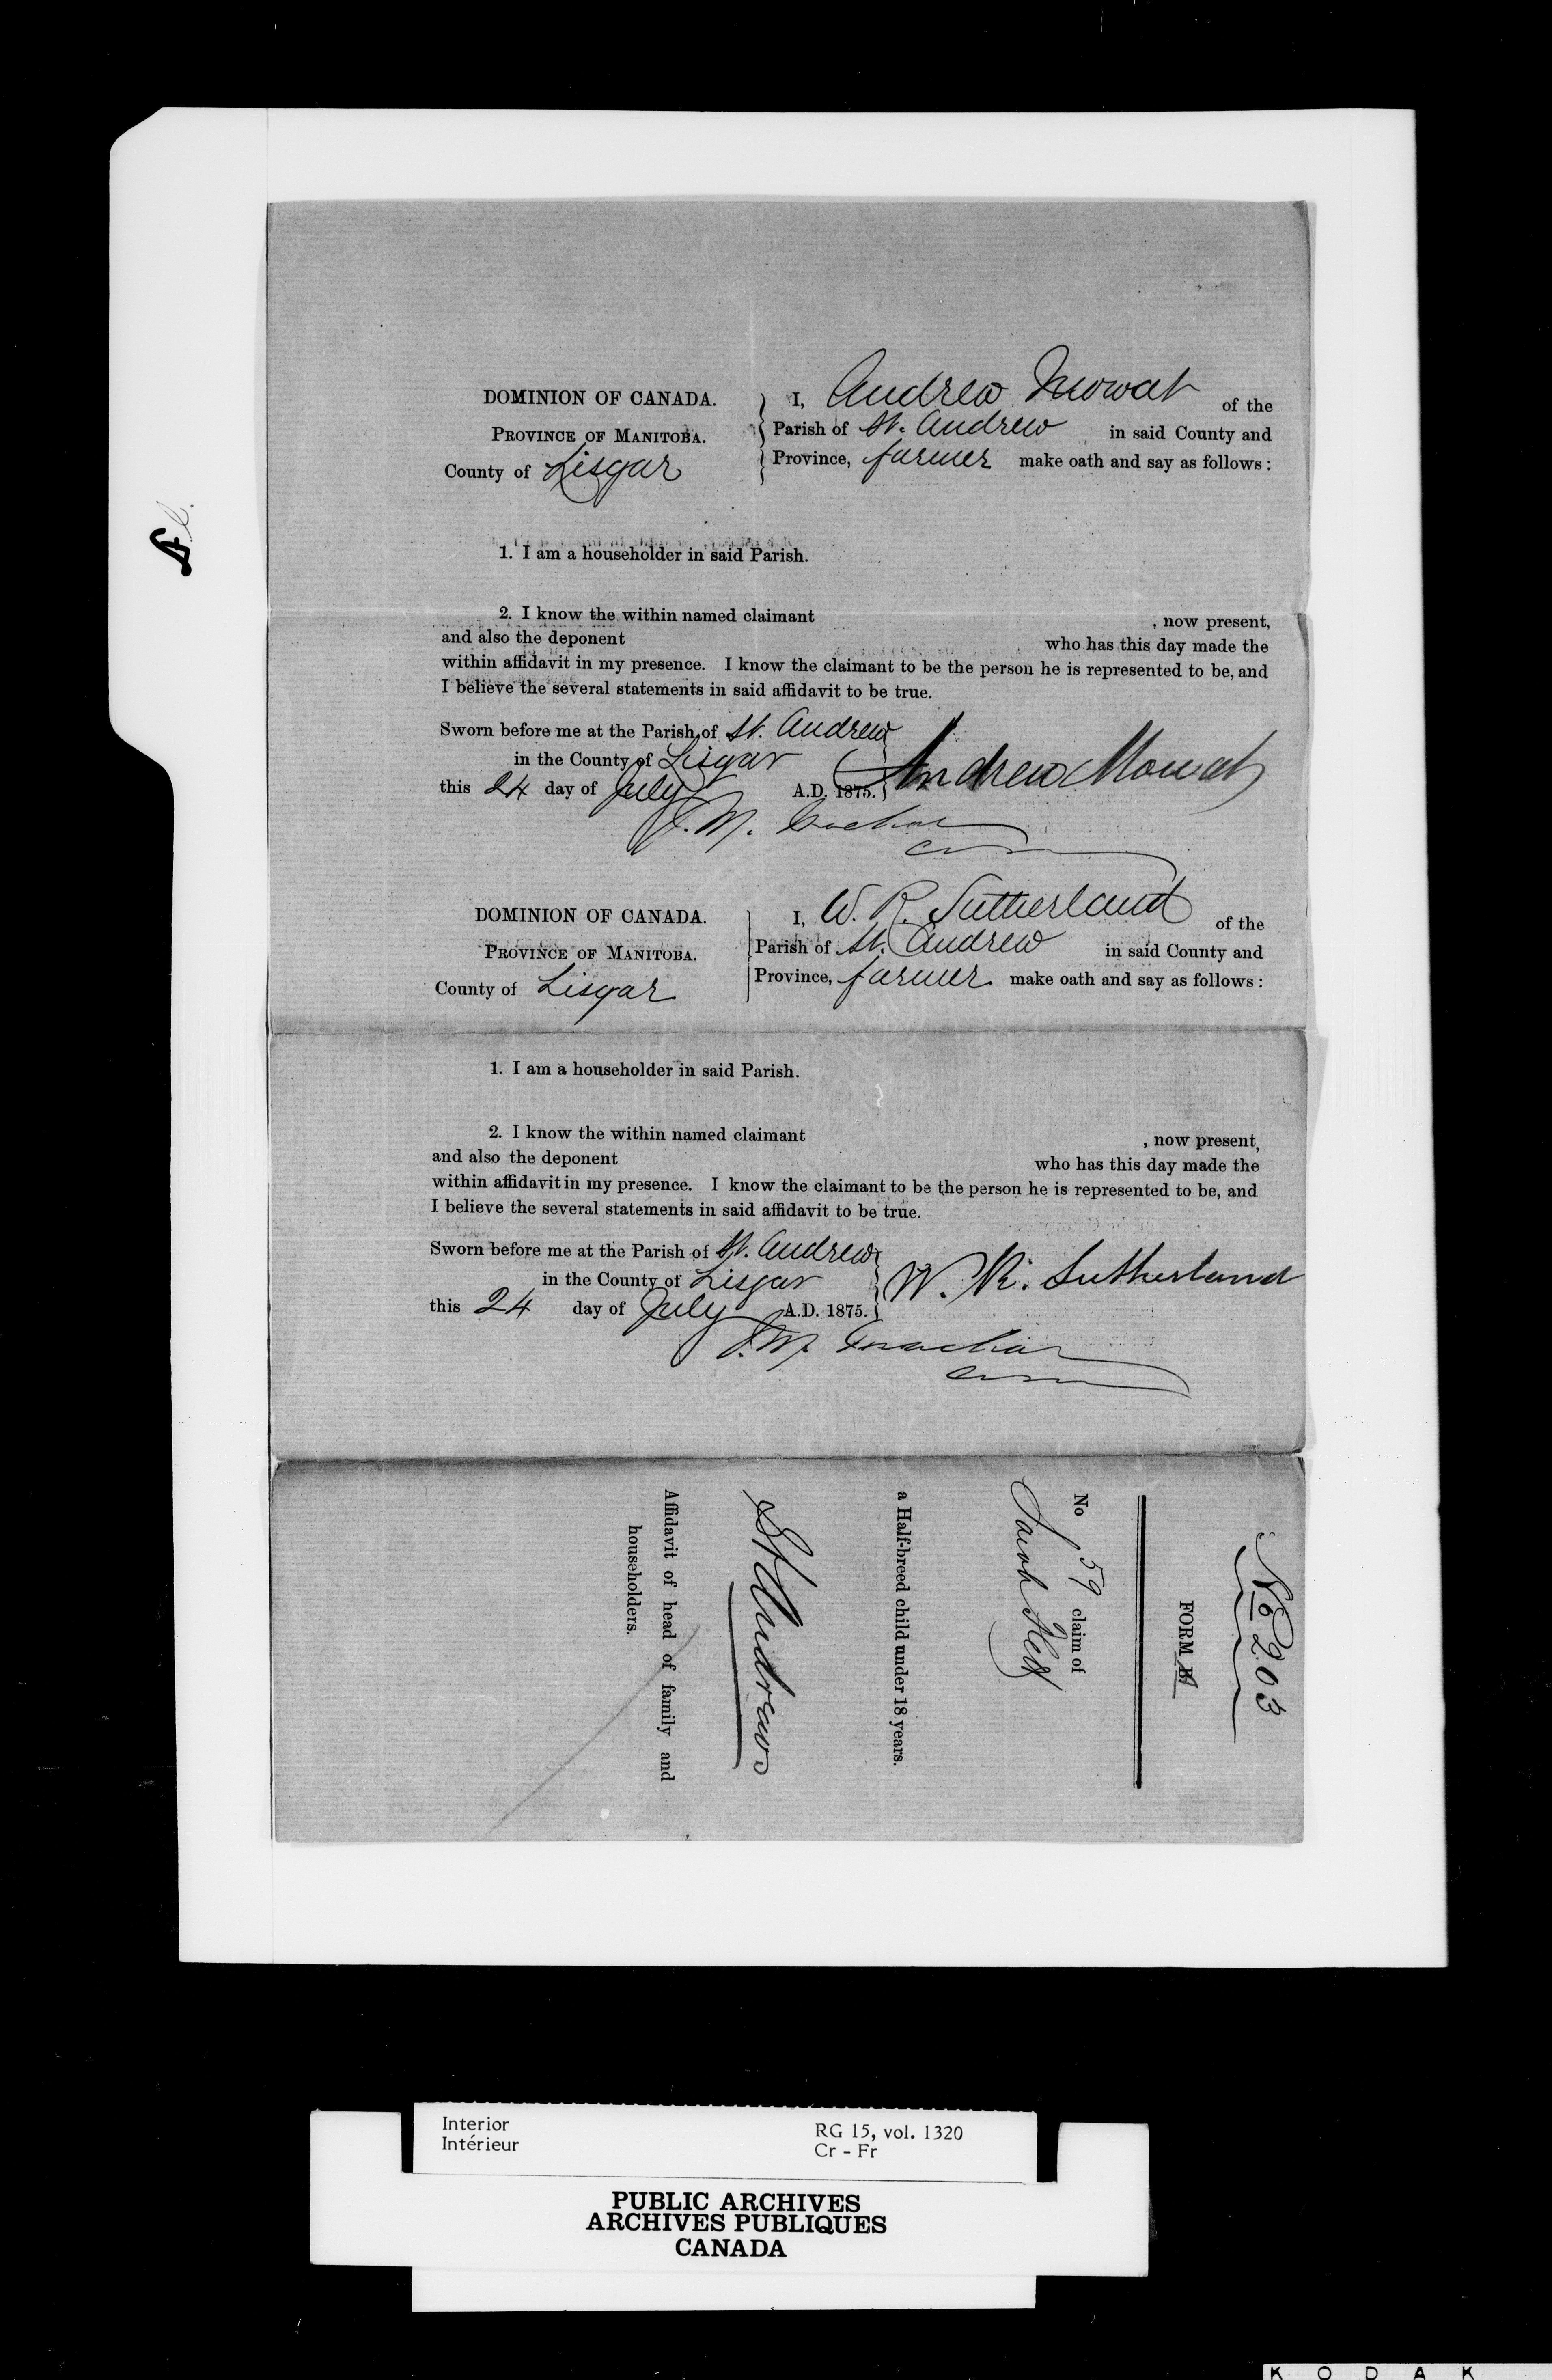 DOMINION OF CANADA.
PROVINCE OF MANITOBA.
County of Lisgar
I, Andrew Mowat of the
Parish of St. Andrew in said County and
Province, farmer make oath and say as follows:
1. I am a householder in said Parish.
2. I know the within named claimant , now present,
and also the deponent who has this day made the
within affidavit in my presence. I know the claimant to be the person he is represented to be, and
I believe the several statements in said affidavit to be true.
Sworn before me at the Parish of St. Andrew
in the County of Lisgar
this 24 day of July A.D. 1875.
Andrew Mowat
J. M.
DOMINION OF CANADA.
PROVINCE OF MANITOBA.
County of Lisgar
I, W. R. Sutherland of the
Parish of St. Andrew in said County and
Province, farmer make oath and say as follows:
1. I am a householder in said Parish.
2. I know the within named claimant , now present,
and also the deponent who has this day made the
within affidavit in my presence. I know the claimant to be the person he is represented to be, and
I believe the several statements in said affidavit to be true.
Sworn before me at the Parish of St. Andrew
in the County of Lisgar
this 24 day of July A.D. 1875.
W. R. Sutherland
J. M.
No 203
FORM
No 59 claim of
Jacob
a Half-breed child under 18 years.
St Andrews
Affidavit of head of family and
householders.
Interior
Intérieur
RG 15, vol. 1320
Cr - Fr
PUBLIC ARCHIVES
ARCHIVES PUBLIQUES
CANADA
KODAK